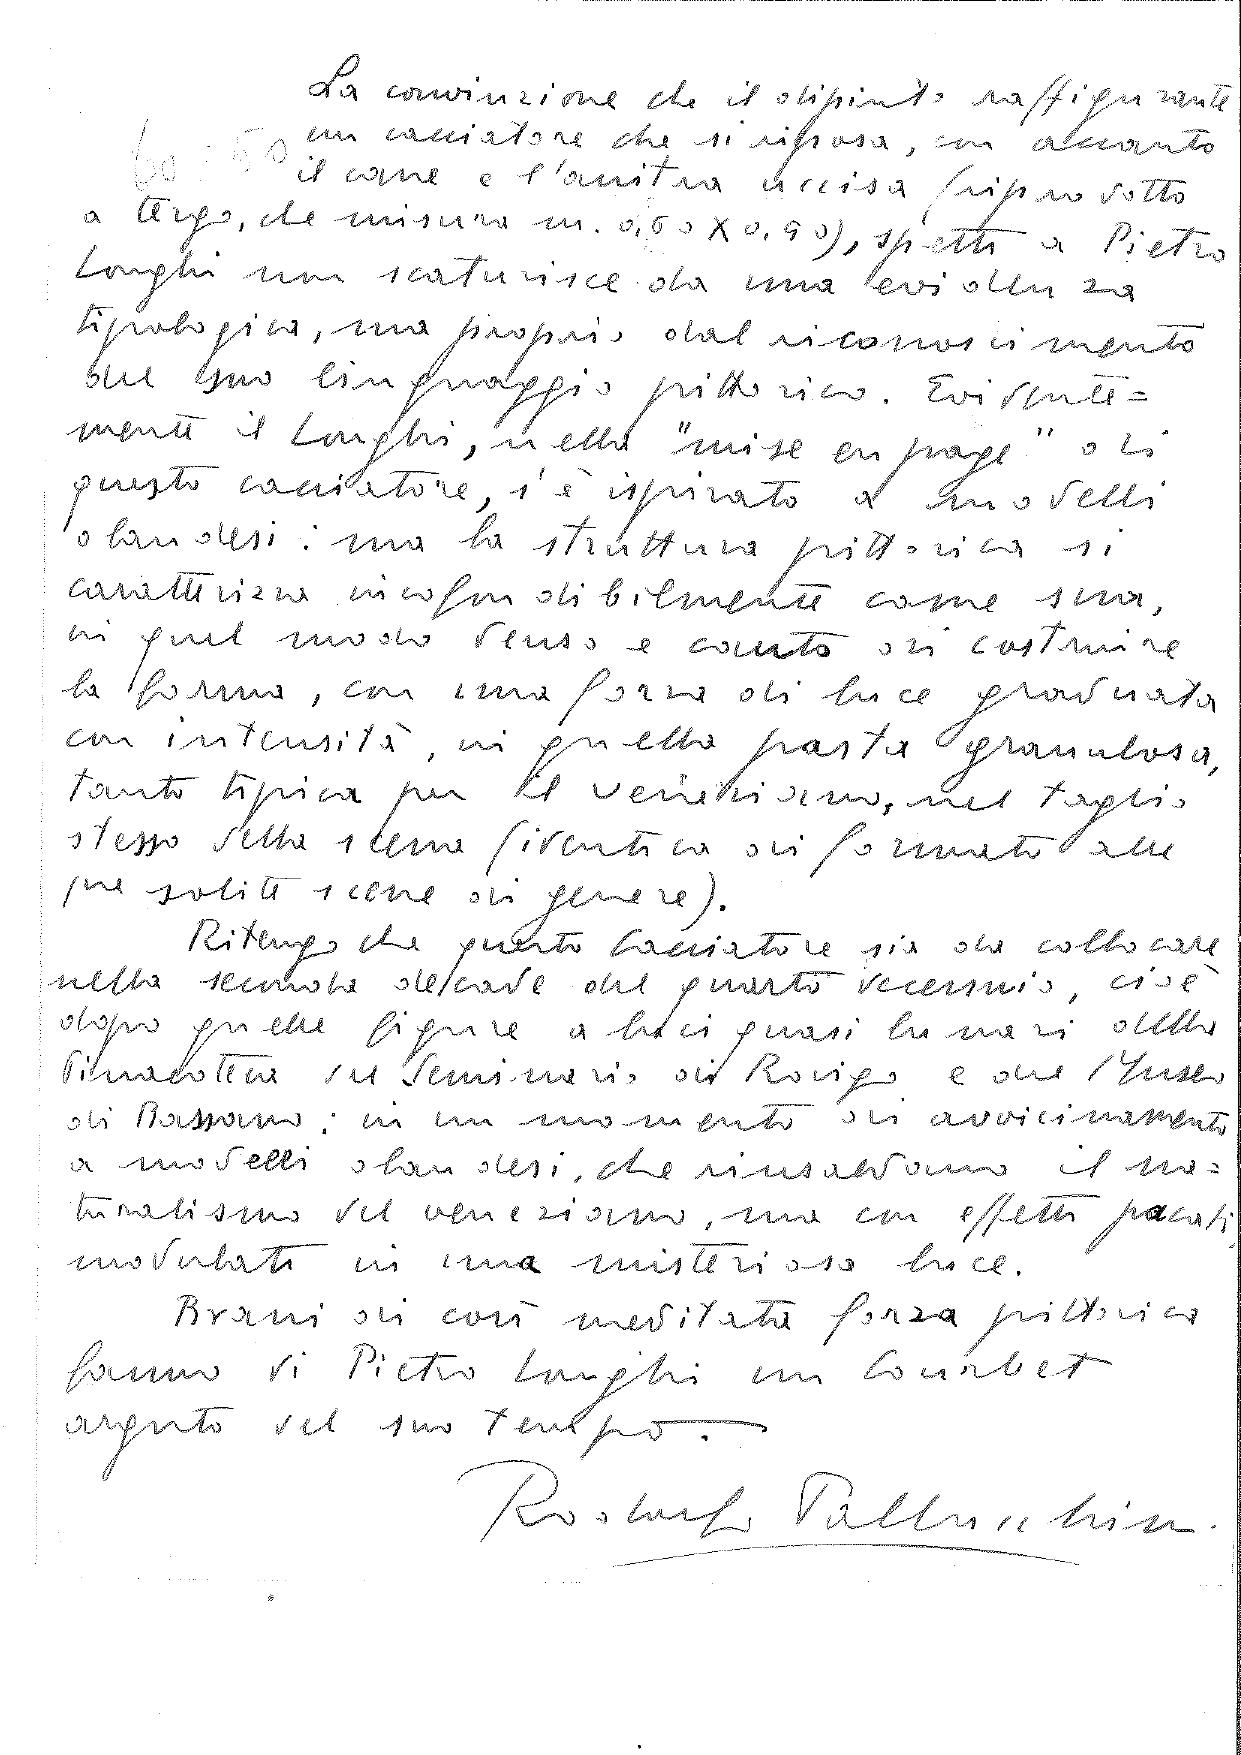 La convinzione che il dipinto raffigurante
un cacciatore che si riposa, con accanto
60 : 50
il cane e l'anitra uccisa (riprodotto
a tergo, che misura m. 0,60 X 0,90), spetti a Pietro
Longhi non scaturisce da una evidenza
tipologica, ma proprio dal riconoscimento
del suo linguaggio pittorico. Evidente=
mente il Longhi, nella "mise en page" di
questo cacciatore, s'è ispirato a modelli
olandesi: ma la struttura pittorica si
caratterizza inconfondibilmente come sua,
in quel modo denso e cauto di costruire
la forma, con una forza di luce graduata
con intensità, in quella pasta granulosa,
tanto tipica per il veneziano, nel taglio
stesso della scena (identica di formato alle
sue solite scene di genere).
Ritengo che questo Cacciatore sia da collocare
nella seconda decade del quarto decennio, cioè
dopo quelle figure a luci quasi lunari della
Pinacoteca del Seminario di Rovigo e del Museo
di Bassano: in un momento di avvicinamento
a modelli olandesi, che rinsaldano il na=
turalismo del veneziano, ma con effetti pacati,
modulati in una misteriosa luce.
Brani di così meditata forza pittorica
fanno di Pietro Longhi un Courbet
arguto del suo tempo.
Rodolfo Pallucchini.